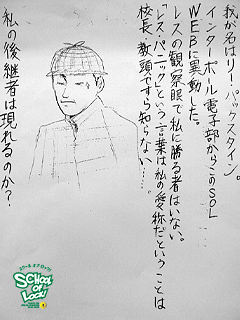 我が名はリー・パックスタイン。
インターポール電子部からこのSOL
WEBに異動した。
レスの観察眼で私に勝る者はいない。
「レス・パニック」という言葉は私の愛称だということは
校長、教頭ですら知らない……。
私の後継者は現れるのか?
SCHOOL
OF
LOCK!